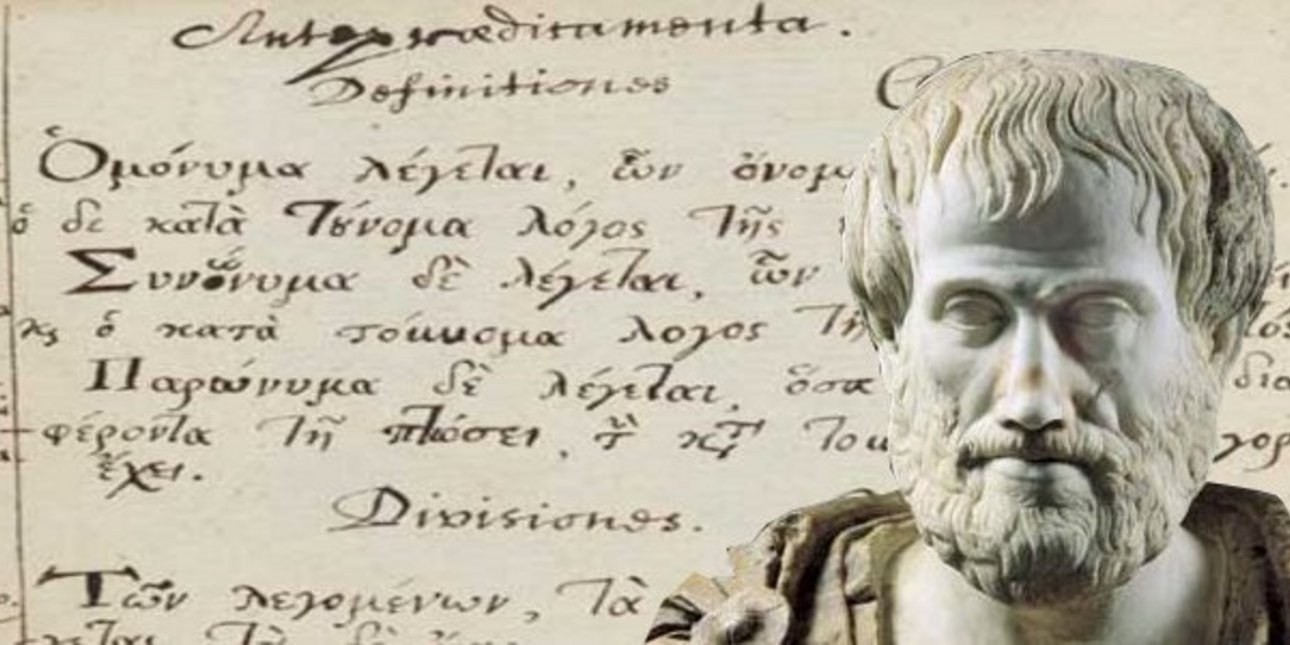 Antepraedicamenta.
Definitiones
Ὁμόνυμα λέγεται, ὧν ὄνομ
ὁ δὲ κατὰ τοὔνομα λόγος τῆς
Συνώνυμα δὲ λέγεται, ὧν
κς ὁ κατὰ τοὔνομα λογος τῆ
Παρώνυμα δὲ λέγεται, ὅσα δια
φέροντα τῇ πτώσει, τ του γορ
ἔχει.
Divisiones.
Τῶν λεγομένων, τὰ